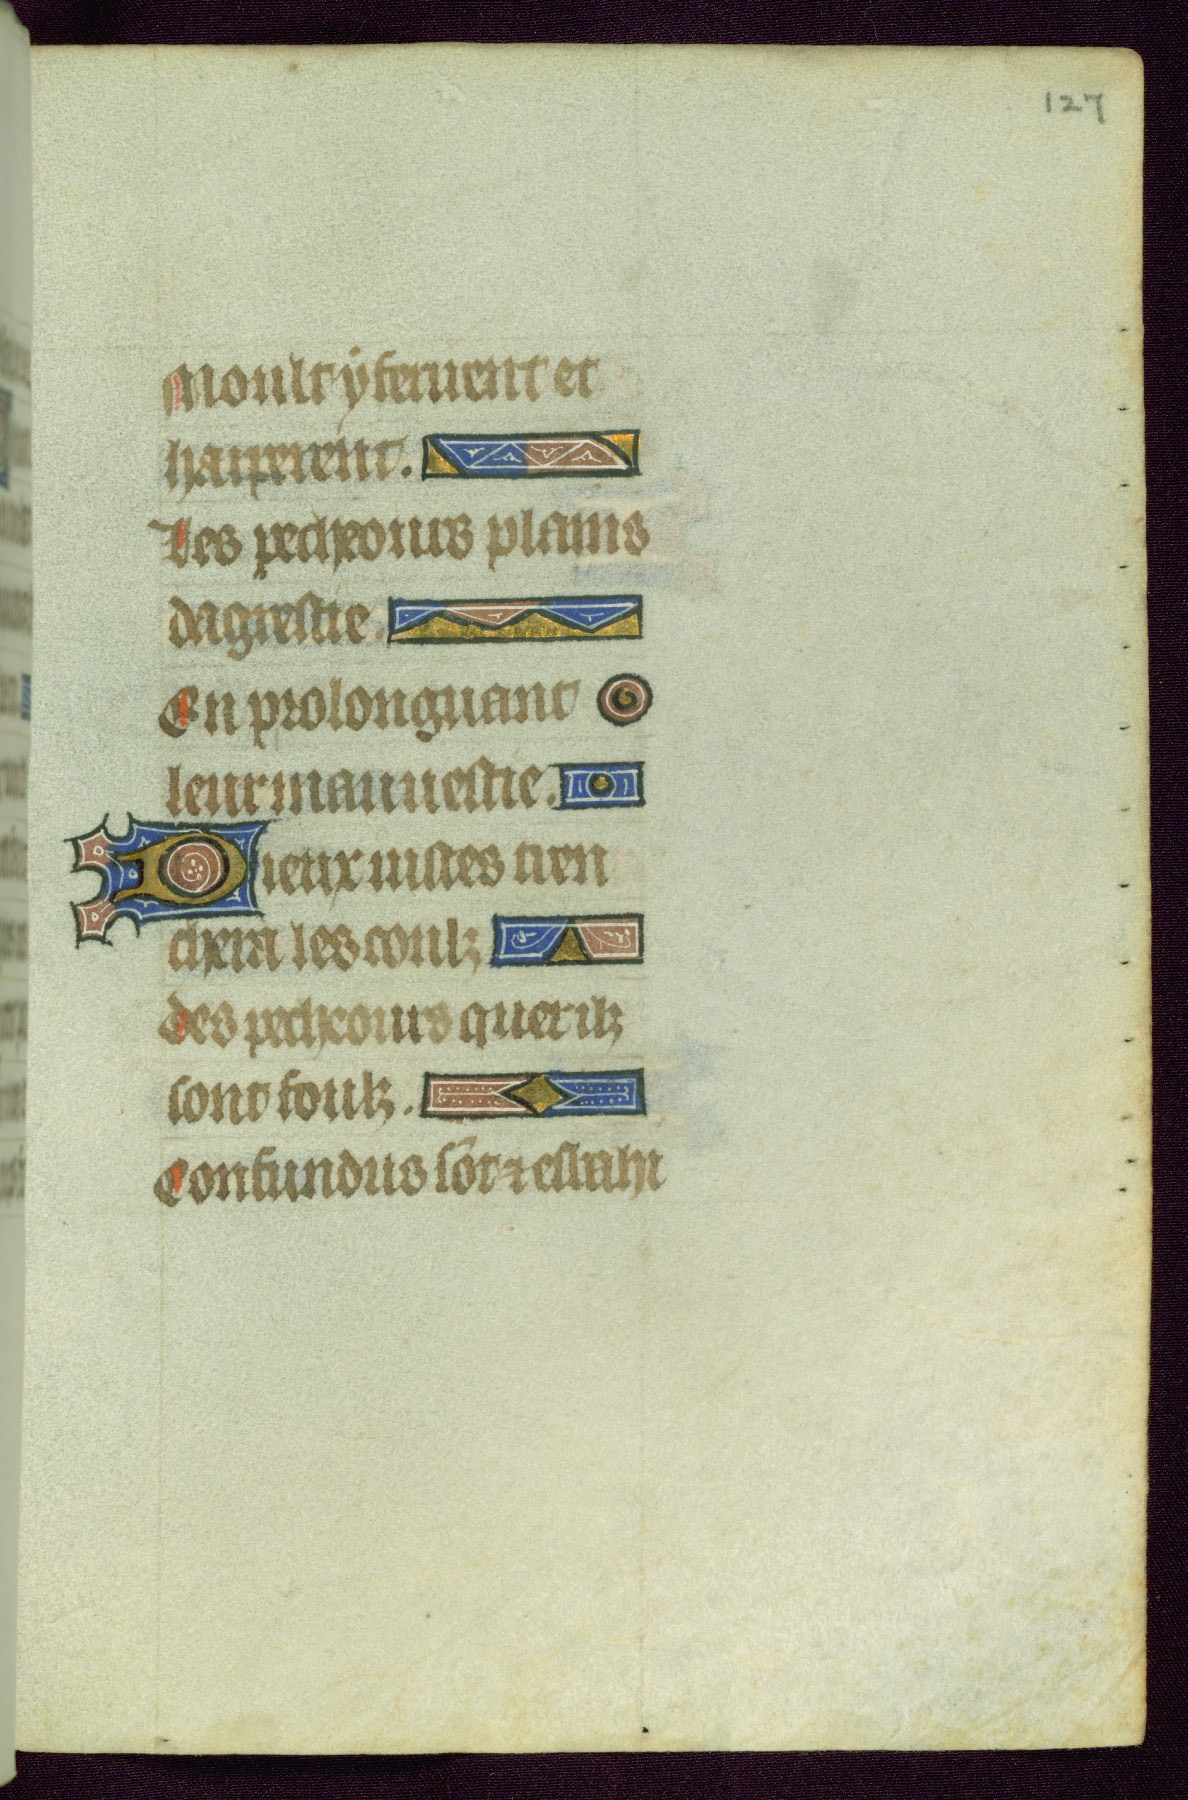 127
Moult y feruent et
hauxerent.
Les pecheours plains
dagrestie.
En prolonguant
leur mauuestie.
Dieux iustes tren
chera les coulz
des pecheours quer ilz
sont foulz.
Confundus sōt ⁊ esbahi